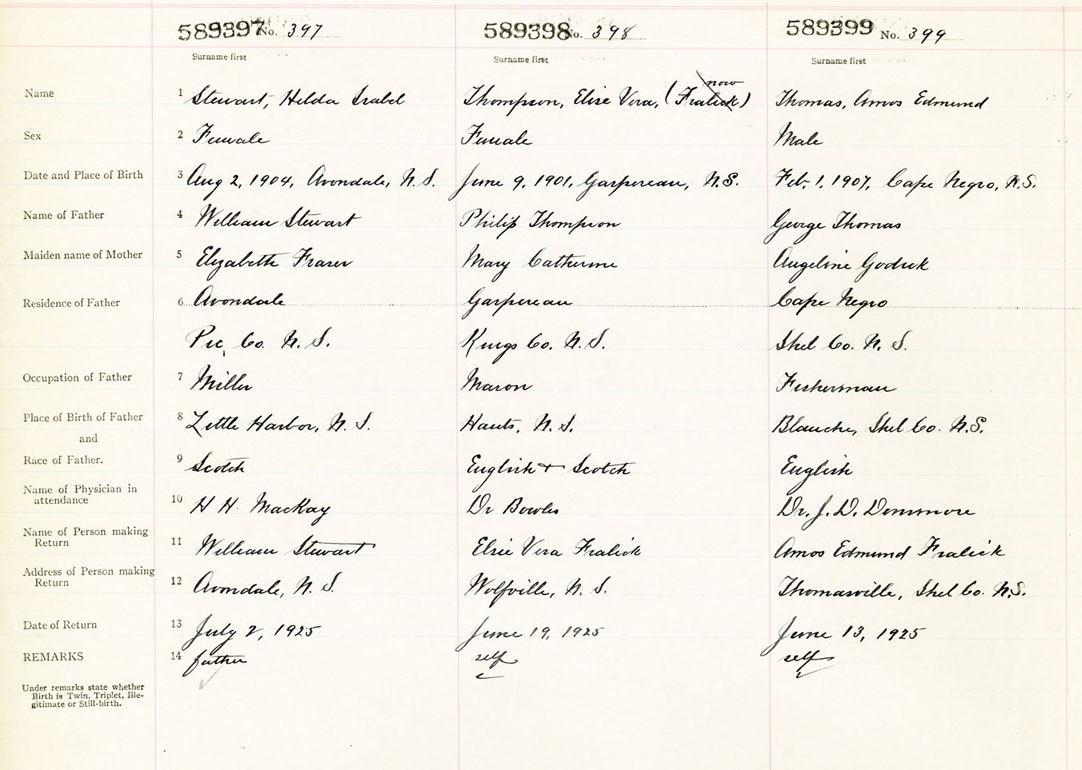 589397 No. 397 589398 No. 398 589399 No. 399
Surname first Surname first Surname first
now
Name 1 Stewart, Hilda Isabel Thompson, Elsie Vera, (Fralick) Thomas, Amos Edmund
Sex 2 Female Female Male
Date and Place of Birth 3 Aug 2, 1904, Avondale, N.S. June 9, 1901, Gaspereau, N.S. Feb. 1, 1907, Cape Negro, N.S.
Name of Father 4 William Stewart Philip Thompson George Thomas
Maiden name of Mother 5 Elizabeth Fraser Mary Catherine Angeline
Residence of Father 6 Avondale Gaspereau Cape Negro
Pic. Co. N.S. Kings Co. N.S. Shel Co. N.S.
Occupation of Father 7 Miller Mason Fisherman
Place of Birth of Father 8 Little Harbor, N.S. Hants, N.S. Blanche, Shel Co. N.S.
and
Race of Father. 9 Scotch English + Scotch English
Name of Physician in
attendance 10 H H. MacKay Dr Bowles Dr. J. D.
Name of Person making
Return 11 William Stewart Elsie Vera Fralick Amos Edmund Fralick
Address of Person making
Return 12 Avondale, N.S. Wolfville, N.S. Thomasville, Shel Co. N.S.
Date of Return 13 July 2, 1925 June 19, 1925 June 13, 1925
REMARKS 14 father self self
Under remarks state whether
Birth is Twin, Triplet, Ille-
gitimate or Still-birth.